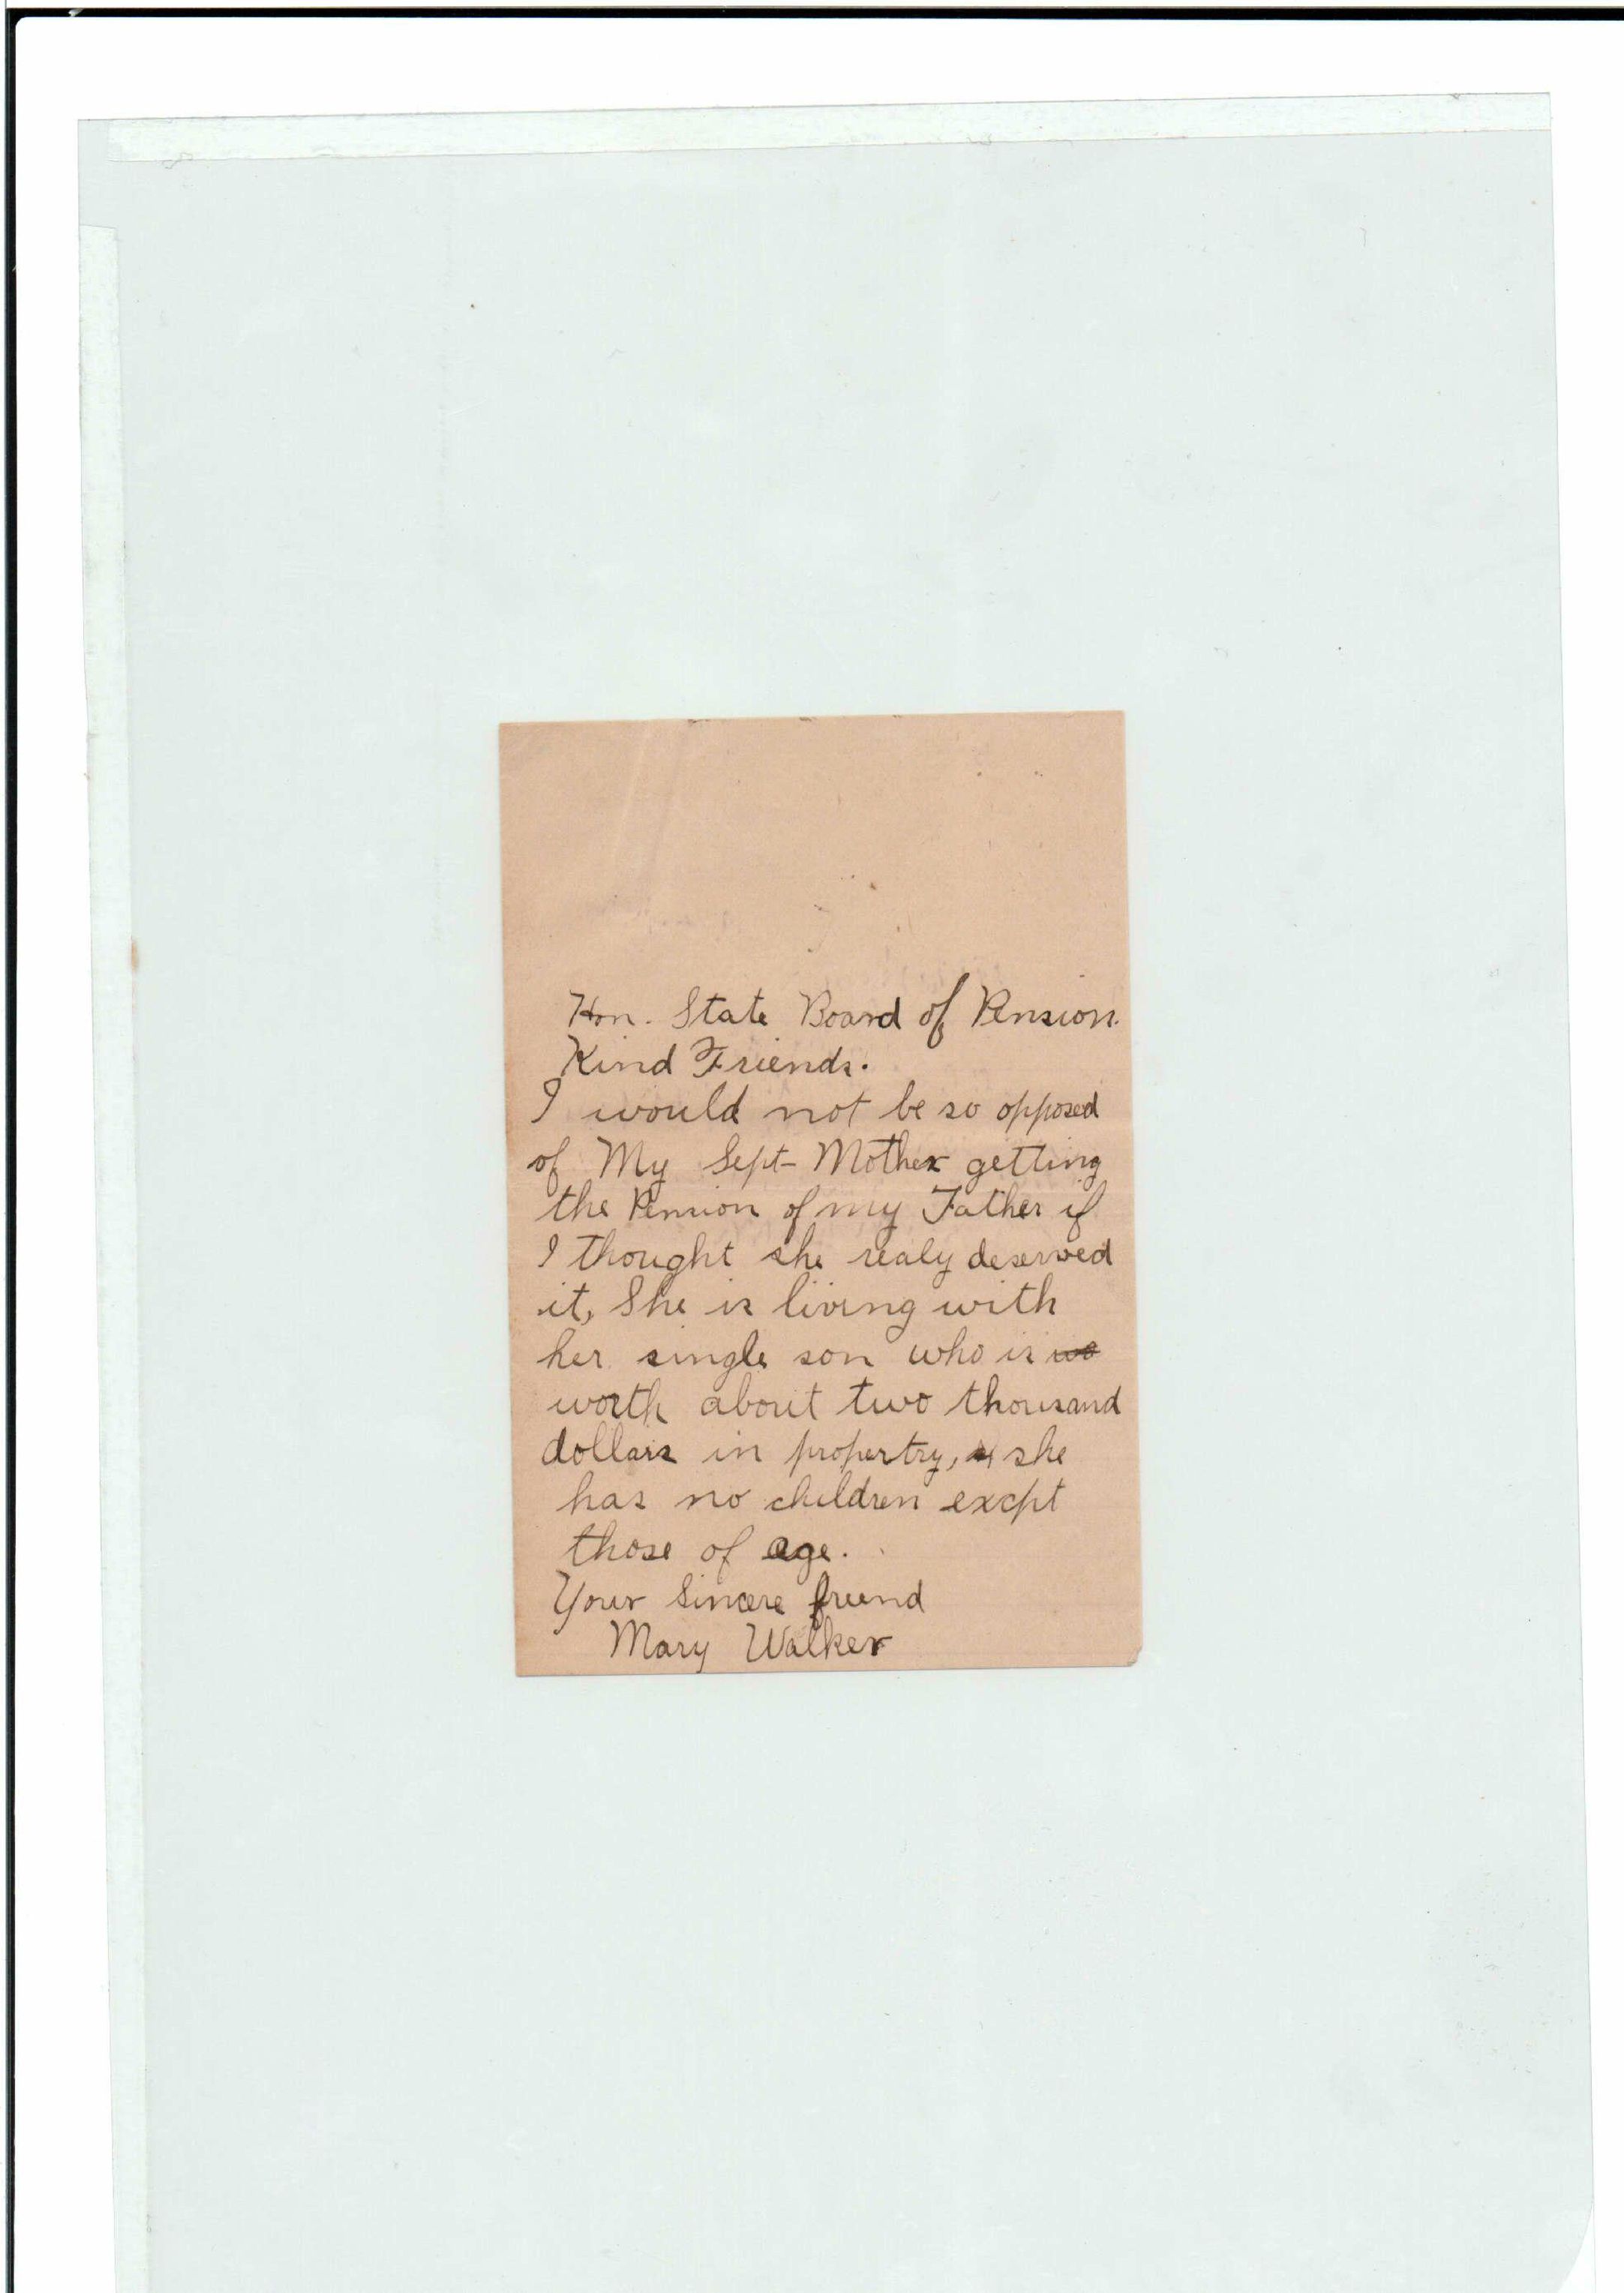 Hon. State Board of Pension.
Kind Friends.
I would not be so opposed
of My Sept-Mother getting
the Pension of my Father if
I thought she realy deserved
it, She is living with
her single son who is wo
worth about two thousand
dollars in propertry, & she
has no children excpt
those of age.
Your Sincere friend
Mary Walker